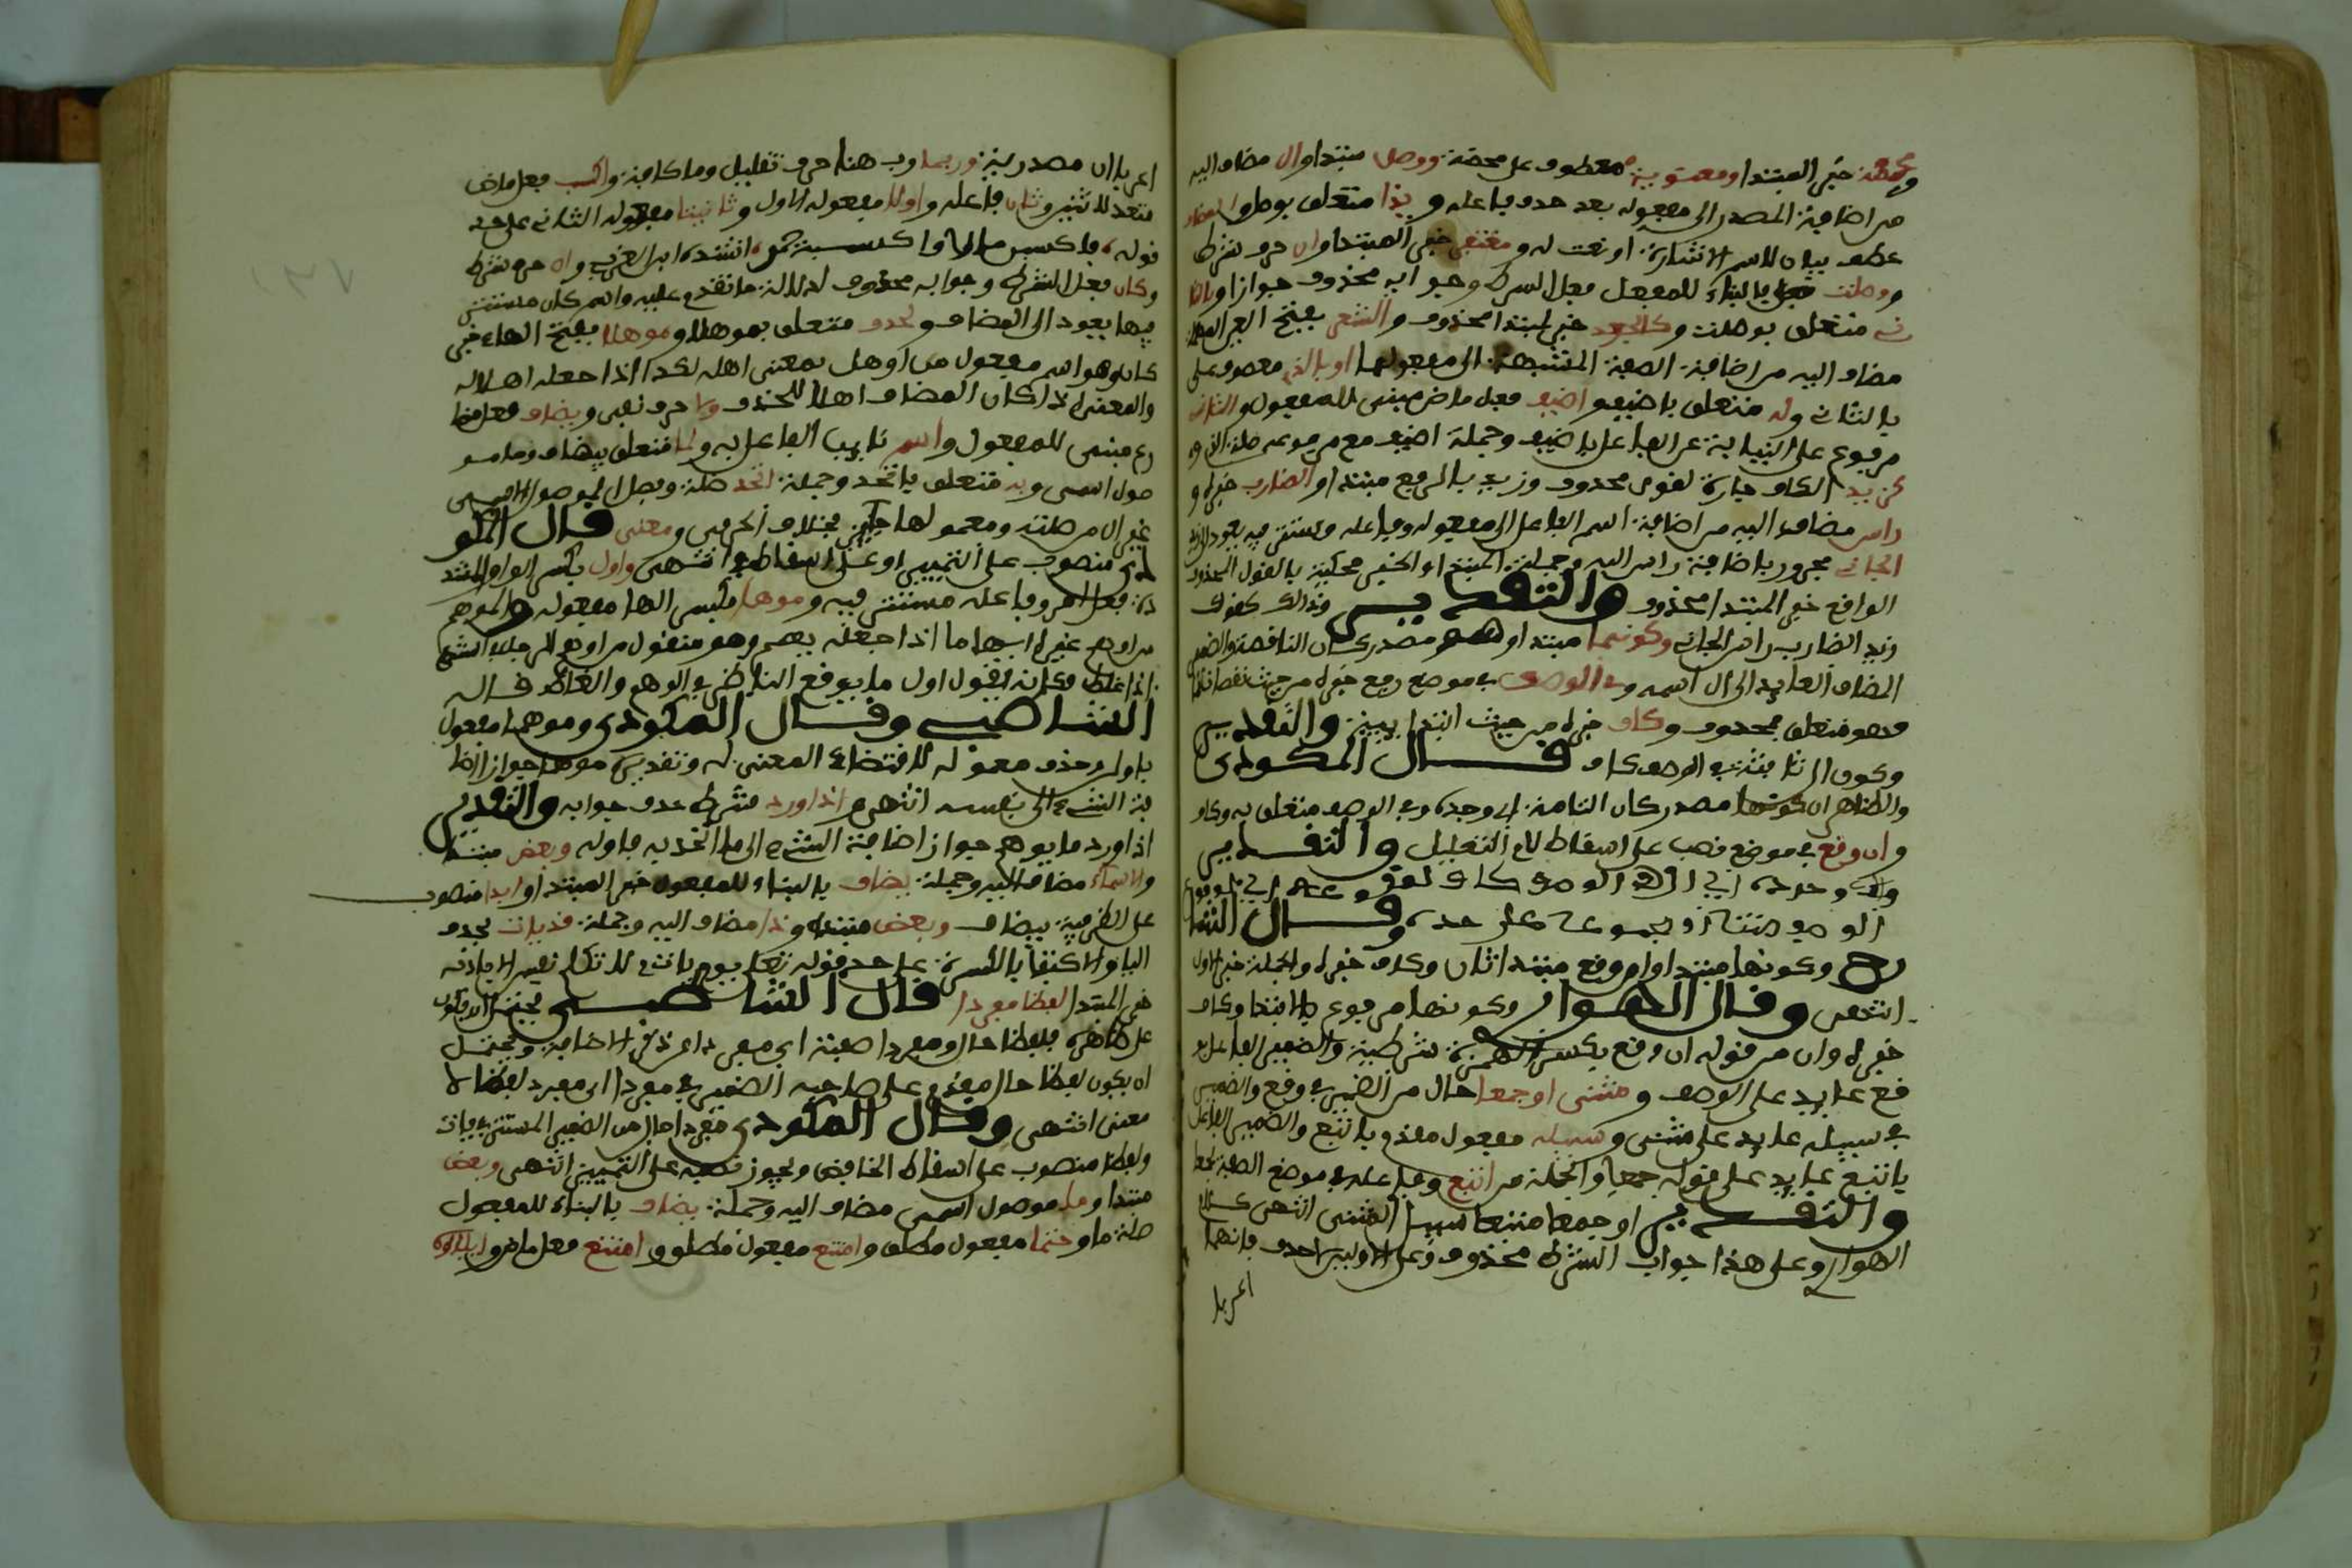 ومحضة خبر المبتدا ومعنوية معطوف على محضة ووصل مبتدا وال مضاف اليه
من اضافة المصدر الى مفعوله بعد حذف فاعله وبذا متعلق بوصل والمضاف
عطف بيان لاسم الاشارة او نعت له ومغتفر خبر المبتدا وان حرف شرط
ووصلت بالبناء للمفعل فعل الشرط وجوابه محذوف جوازا وبالثا
ني متعلق بوصلت وكالجعد خبر لمبتدا محذوف والشعر بفتح العين المهملة
مضاف اليه من اضافة الصفة المشبهة الى معمولها او بالذي معطوف على
بالثاني وله متعلق باضيف واضيف فعل ماض مبني للمفعول والثاني
مرفوع على النيابة عن الفاعل باضيف وجملة اضيف مع مرفوعه صلة الذي و
كزيد الكاف جارة لقول محذوف وزيد بالرفع مبتدا والضارب خبره و
راس مضاف اليه من اضافة اسم الفاعل الى مفعوله وفاعله مستتر فيه يعود الى زيد
الجاني مجرور باضافة راس اليه وجملة المبتدا والخبر محكية بالقول المحذوف
الواقع خبر المبتدا محذوف والتقدير وذلك كقولك
زيد الضارب راس الجاني وكونها مبتدا وهو مصدر كان الناقصة والضمير
المضاف العايد الى ال اسمه وفي الوصف في موضع رفع خبره من حيث نقصانها
وهو متعلق بمحذوف وكاف خبره من حيث ابتدائيته والتقدير
وكون ال ثابتة في الوصف كاف قال المكودي
والظاهر ان كونها مصدر كان التامة اي وجد وفي الوصف متعلق به وكاف
وان وقع في موضع نصب على اسقاط لام التعليل والتقدير
الوصف مثنا او مجموعا على حده وقال الشا
رح وكونها مبتدا وان وقع مبتدا ثان وكاف خبره والجملة خبر الاول
انتهى وقال الهواري وكونها مرفوع بالابتدا وكاف
خبره وان من قوله ان وقع بكسر الهمزة شرطية والضمير الفاعل بو
قع عايد على الوصف ومثنى او جمعا حال من الضمير في وقع والضمير
في سبيله عايد على مثنى وسبيله مفعول مقدم باتبع والضمير الفاعل
باتبع عايد على قوله جمعا والجملة من اتبع وفاعله في موضع الصفة لجمعا
والتقدير او جمعا متبعا سبيل المثنى انتهى كلام
الهواري وعلى هذا جواب الشرط محذوف وعلى الاوليين حذف فانهما
اعربا
اعربا ان مصدرية وربما رب هنا حرف تقليل وما كافة واكسب فعل ماض
متعد لاثنين وثان فاعله واولا مفعوله الاول وتانيثا مفعوله الثاني على حد
قوله انشده ابن العربي وان حرف شرط
وكان فعل الشرط وجوابه محذوف لدلالة ما تقدم عليه واسم كان مستتر
فيها يعود الى المضاف ولحذف متعلق بموهلا وموهلا بفتح الهاء خبر
كان وهو اسم مفعول من اوهل بمعنى اهله لكذا اذا جعله اهلا له
والمعنى اذا كان المضاف اهلا للحذف ولا حرف نفي ويضاف فعل مضا
رع مبني للمفعول واسم نايب الفاعل به ولما متعلق بيضاف وما مو
صول اسمي وبه متعلق باتحد وجملة اتحد صلة وفصل الموصول الاسمي
من صلته ومعمولها جايز بخلاف الحرفي ومعنى قال المكو
دي منصوب على التمييز او على اسقاط في انتهى واول بكسر الواو المشد
دة فعل امر وفاعله مستتر فيه وموهما بكسر الهاء مفعوله والموهم
من اوهم غيره ايهاما اذا جعله يهم وهو منقول من اوهم الرجل في الشيء
اذا غلط فكانه يقول اول ما يوقع الناظر في الوهم والغلط قاله
الشاطبي وقال المكودي وموهما مفعول
باول وحذف معموله لاقتضاء المعنى له وتقديره موهما جواز اضا
فة الشيء الى نفسه انتهى واذا ورد شرط حذف جوابه والتقدير
اذا ورد ما يوهم جواز اضافة الشيء الى ما اتحد به فاوله وبعض مبتدا
والاسماء مضاف اليه وجملة يضاف بالبناء للمفعول خبر المبتدا وابدا منصوب
على الظرفية بيضاف وبعض مبتدا وذا مضاف اليه وجملة قد يات بحذف
اليا والاكتفا بالكسرة على حد قوله تعالى يوم يات لا تكلم نفس الا باذنه
خبر المبتدا لفظا مفردا قال الشاطبي يحتمل ان يكون
على ظاهره فلفظا حال ومفردا صفته اي مفردا عن الاضافة ويحتمل
ان يكون لفظا حال مقدم على صاحبه الضمير في مفردا اي مفرد لفظا لا
معنى انتهى وقال المكودي مفردا حال من الضمير المستتر في يات
ولفظا منصوب على اسقاط الخافض ويجوز نصبه على التمييز انتهى وبعض
مبتدا وما موصول اسمي مضاف اليه وجملة يضاف بالبناء للمفعول
صلة ما وحتما مفعول مطلق وامتنع فعل ماض وايلاؤه